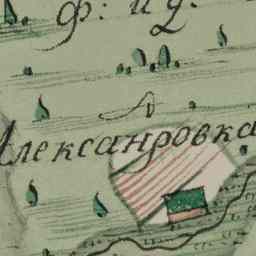 ф: и ц.
Александровка